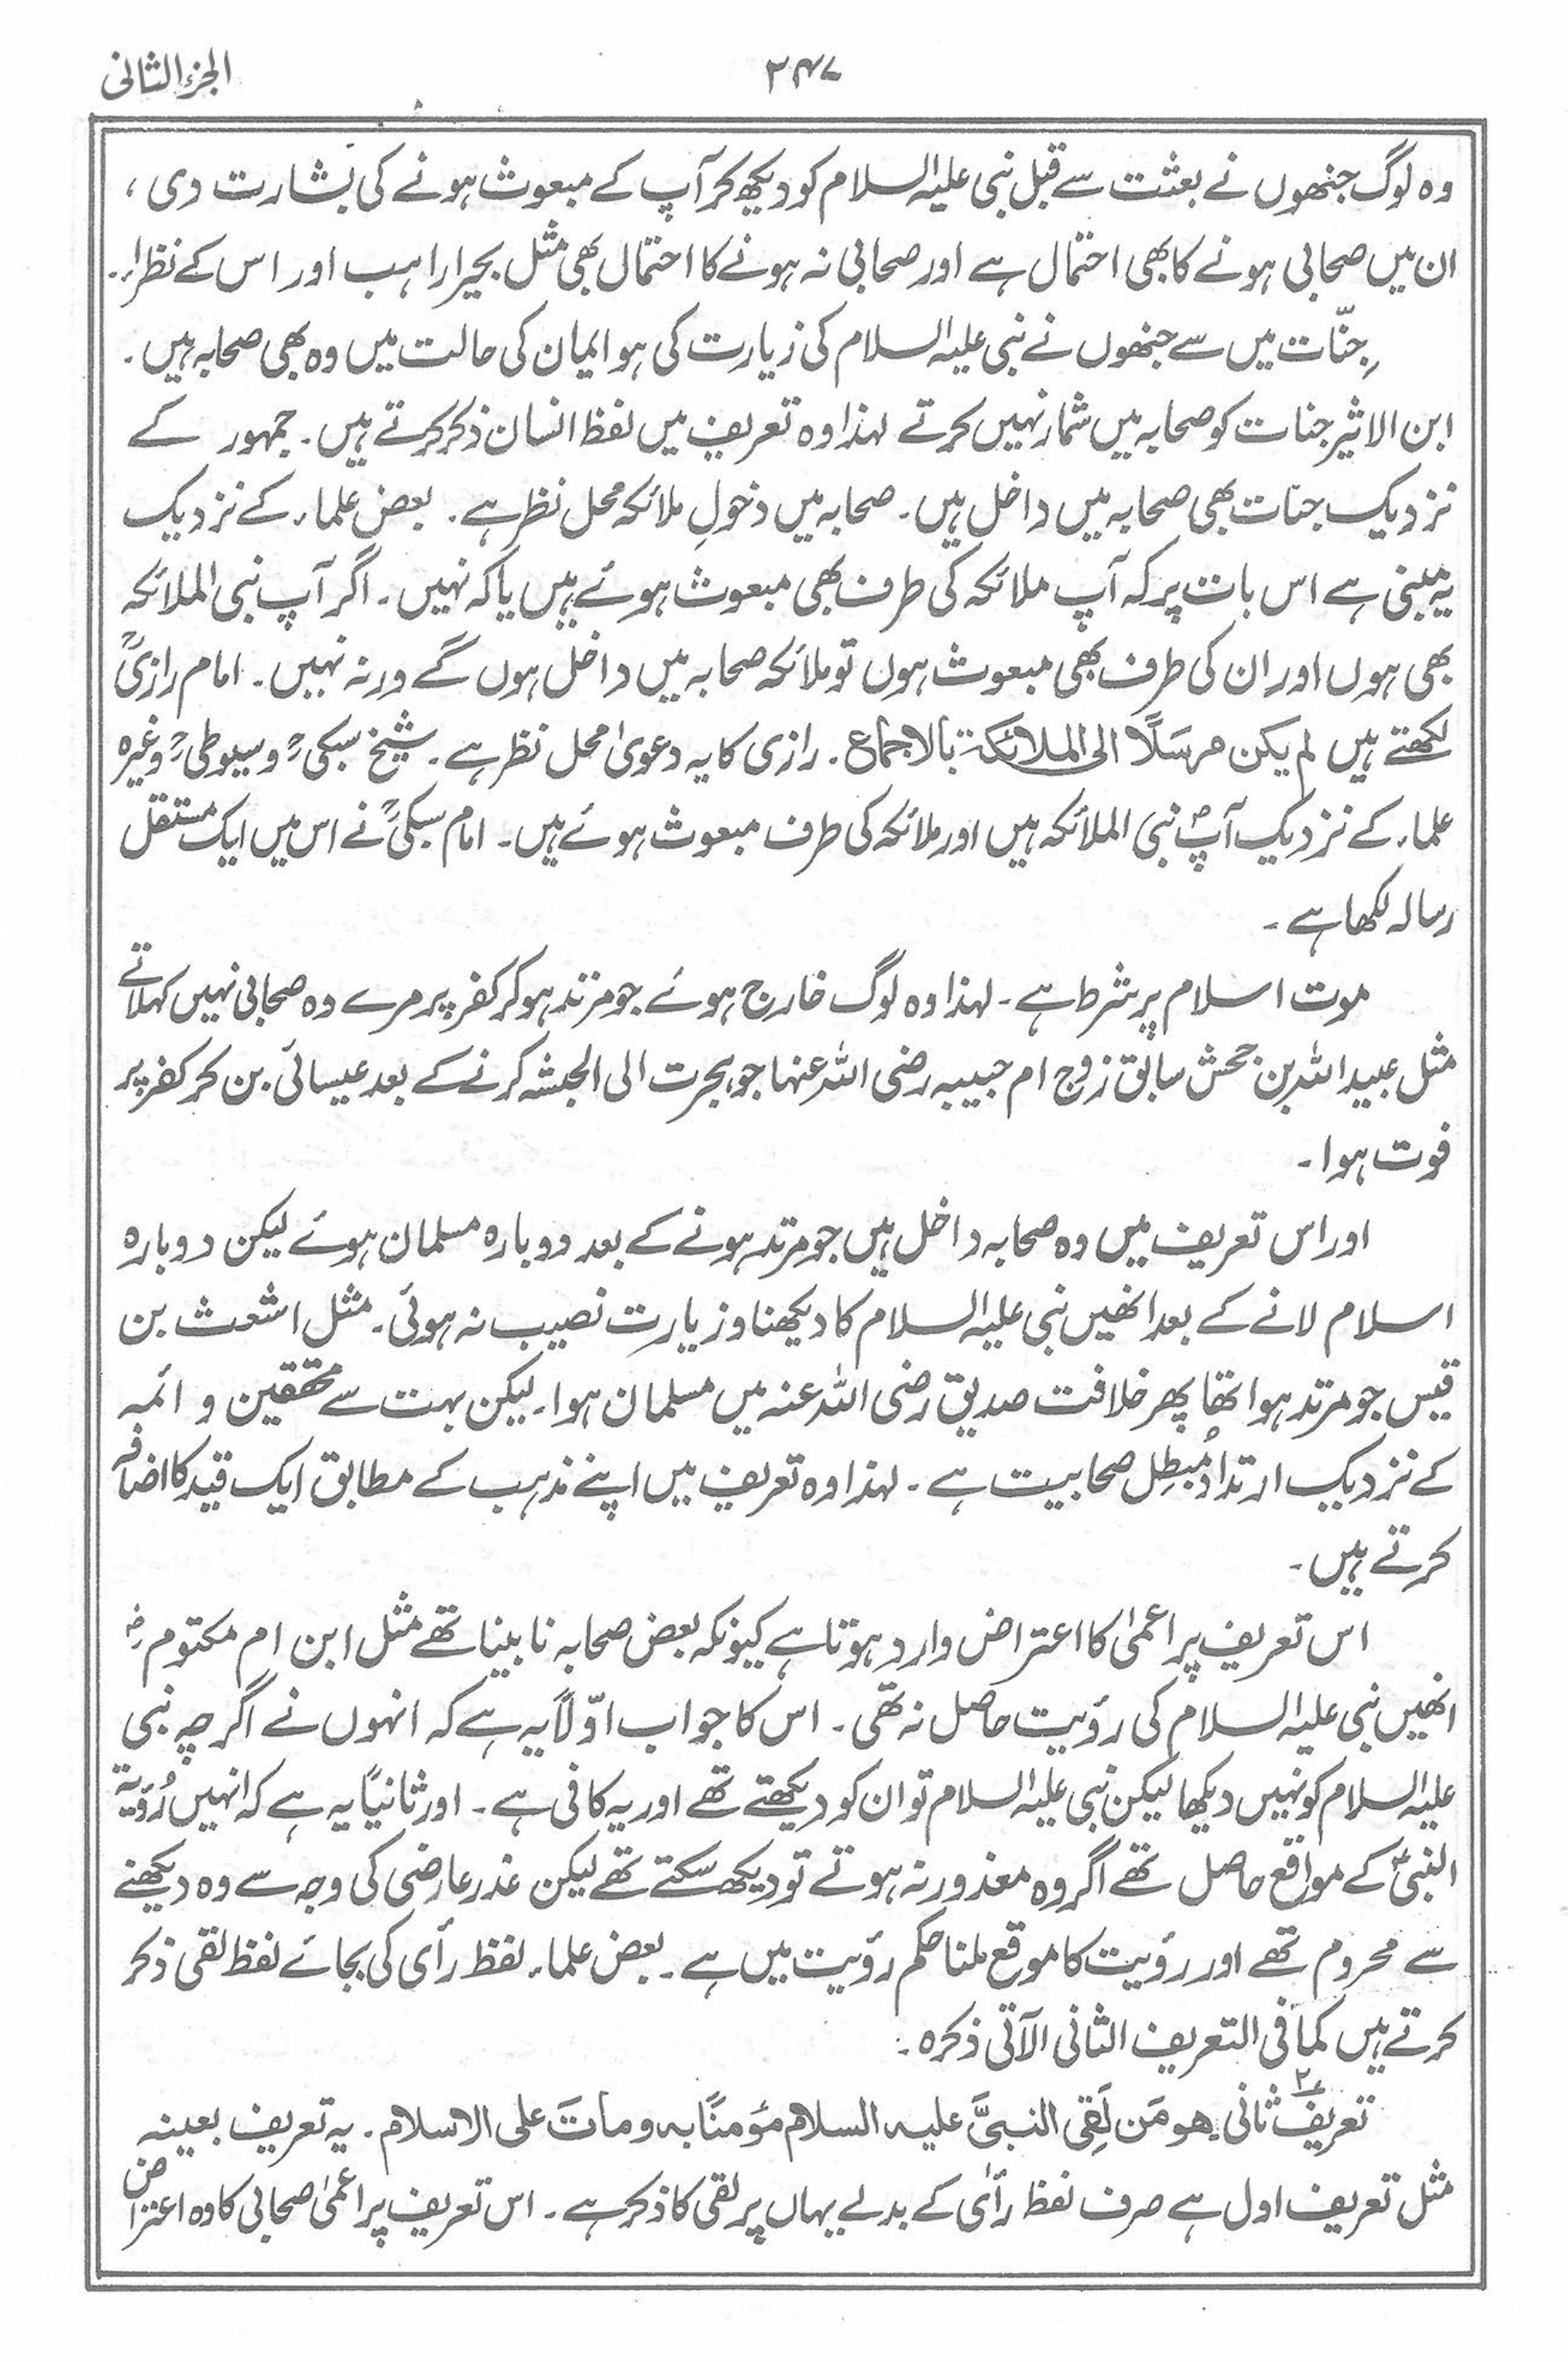 الجزء الثانی
۳۴۷
وہ لوگ جنھوں نے بعثت سے قبل نبی علیہ السلام کو دیکھ کر آپ کے مبعوث ہونے کی بشارت دی ،
ان میں صحابی ہونے کا بھی احتمال ہے اور صحابی نہ ہونے کا احتمال بھی مثل بحیرا راہب اور اس کے نظراء۔
جِنّات میں سے جنھوں نے نبی علیہ السلام کی زیارت کی ہو ایمان کی حالت میں وہ بھی صحابہ ہیں۔
ابن الاثیر جنات کو صحابہ میں شمار نہیں کرتے لہٰذا وہ تعریف میں لفظ انسان ذکر کرتے ہیں۔ جمہور کے
نزدیک جنات بھی صحابہ میں داخل ہیں۔ صحابہ میں دخولِ ملائکہ محل نظر ہے۔ بعض علماء کے نزدیک
یہ مبنی ہے اس بات پر کہ آپ ملائکہ کی طرف بھی مبعوث ہوئے ہیں یا کہ نہیں۔ اگر آپ نبی الملائکہ
بھی ہوں اور ان کی طرف بھی مبعوث ہوں تو ملائکہ صحابہ میں داخل ہوں گے ورنہ نہیں۔ امام رازیؒ
لکھتے ہیں لم یکن مرسَلًا الی الملائکة بالاجماع۔ رازی کا یہ دعویٰ محل نظر ہے۔ شیخ سبکیؒ و سیوطیؒ وغیرہ
علماء کے نزدیک آپؐ نبی الملائکہ ہیں اور ملائکہ کی طرف مبعوث ہوئے ہیں۔ امام سبکیؒ نے اس میں ایک مستقل
رسالہ لکھا ہے۔
موت اسلام پر شرط ہے۔ لہذا وہ لوگ خارج ہوئے جو مرتد ہو کر کفر پر مرے وہ صحابی نہیں کہلاتے
مثل عبید اللہ بن جحش سابق زوج ام حبیبہ رضی اللہ عنہا جو ہجرت الی الحبشہ کرنے کے بعد عیسائی بن کر کفر پر
فوت ہوا۔
اور اس تعریف میں وہ صحابہ داخل ہیں جو مرتد ہونے کے بعد دوبارہ مسلمان ہوئے لیکن دوبارہ
اسلام لانے کے بعد انھیں نبی علیہ السلام کا دیکھنا و زیارت نصیب نہ ہوئی۔ مثل اشعث بن
قیس جو مرتد ہوا تھا پھر خلافت صدیق رضی اللہ عنہ میں مسلمان ہوا۔ لیکن بہت سے محققین و ائمہ
کے نزدیک ارتداد مُبطِل صحابیت ہے۔ لہذا وہ تعریف میں اپنے مذہب کے مطابق ایک قید کا اضافہ
کرتے ہیں۔
اس تعریف پر اعمیٰ کا اعتراض وارد ہوتا ہے کیونکہ بعض صحابہ نابینا تھے مثل ابن ام مکتومؓ
انھیں نبی علیہ السلام کی رؤیت حاصل نہ تھی۔ اس کا جواب اوّلاً یہ ہے کہ انہوں نے اگرچہ نبی
علیہ السلام کو نہیں دیکھا لیکن نبی علیہ السلام تو ان کو دیکھتے تھے اور یہ کافی ہے۔ اور ثانیًا یہ ہے کہ انہیں رُؤیۃ
النبیؐ کے مواقع حاصل تھے اگر وہ معذور نہ ہوتے تو دیکھ سکتے تھے لیکن عذر عارضی کی وجہ سے وہ دیکھنے
سے محروم تھے اور رؤیت کا موقع ملنا حکم رؤیت میں ہے۔ بعض علماء لفظ رأی کی بجائے لفظ لقی ذکر
کرتے ہیں کما فی التعریف الثانی الآتی ذکرہ۔
تعریف ثانی ۲؎ ھو مَن لَقِی النبیَّ علیہ السلام مؤمنًا بہ و ماتَ علی الاسلام۔ یہ تعریف بعینہ
مثل تعریف اول ہے صرف لفظ رأی کے بدلے یہاں پر لقی کا ذکر ہے۔ اس تعریف پر اعمیٰ صحابی کا وہ اعتراض